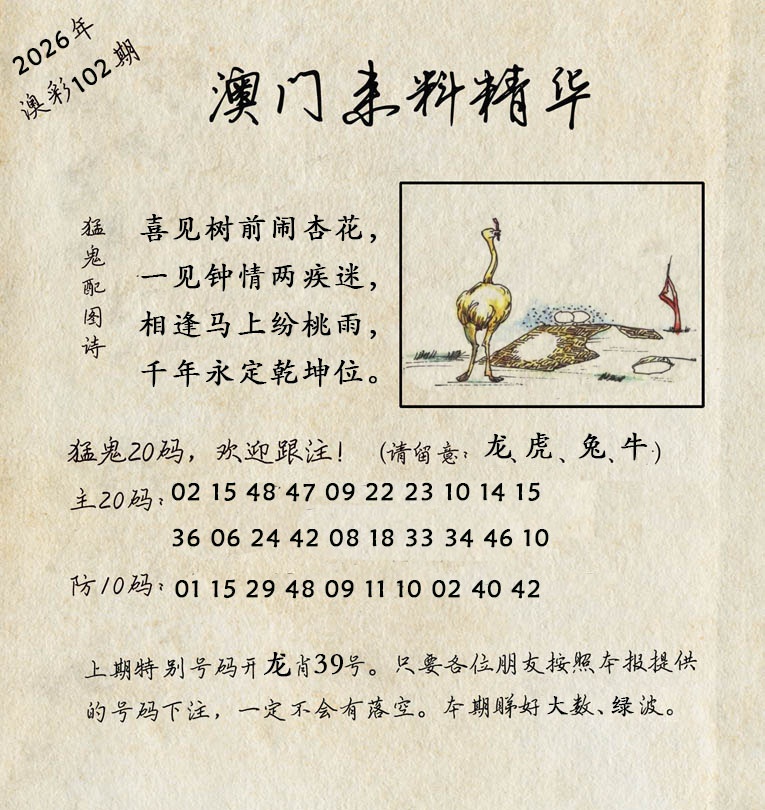 2026年
澳彩102期
澳门来料精华
猛鬼配图诗
喜见树前闹杏花，
一见钟情两疾迷，
相逢马上纷桃雨，
千年永定乾坤位。
猛鬼20码，欢迎跟注！（请留意：龙、虎、兔、牛）
主20码：02 15 48 47 09 22 23 10 14 15
36 06 24 42 08 18 33 34 46 10
防10码：01 15 29 48 09 11 10 02 40 42
上期特别号码开龙肖39号。只要各位朋友按照本报提供
的号码下注，一定不会有落空。本期睇好大数、绿波。